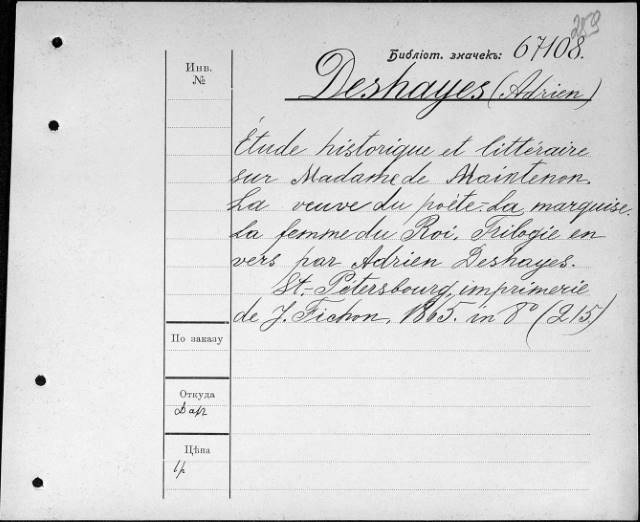 259
Библіот. значекъ: 67108.
Инв.
№
Deshayes (Adrien)
Étude historique et littéraire
sur Madame de Maintenon.
La veuve du poète=La marquise.
La femme du Roi. Trilogie en
vers par Adrien Deshayes.
St.-Petersbourg, imprimerie
de J. Fichon, 1865. in 8º (215)
По заказу
Откуда
Дар
Цѣна